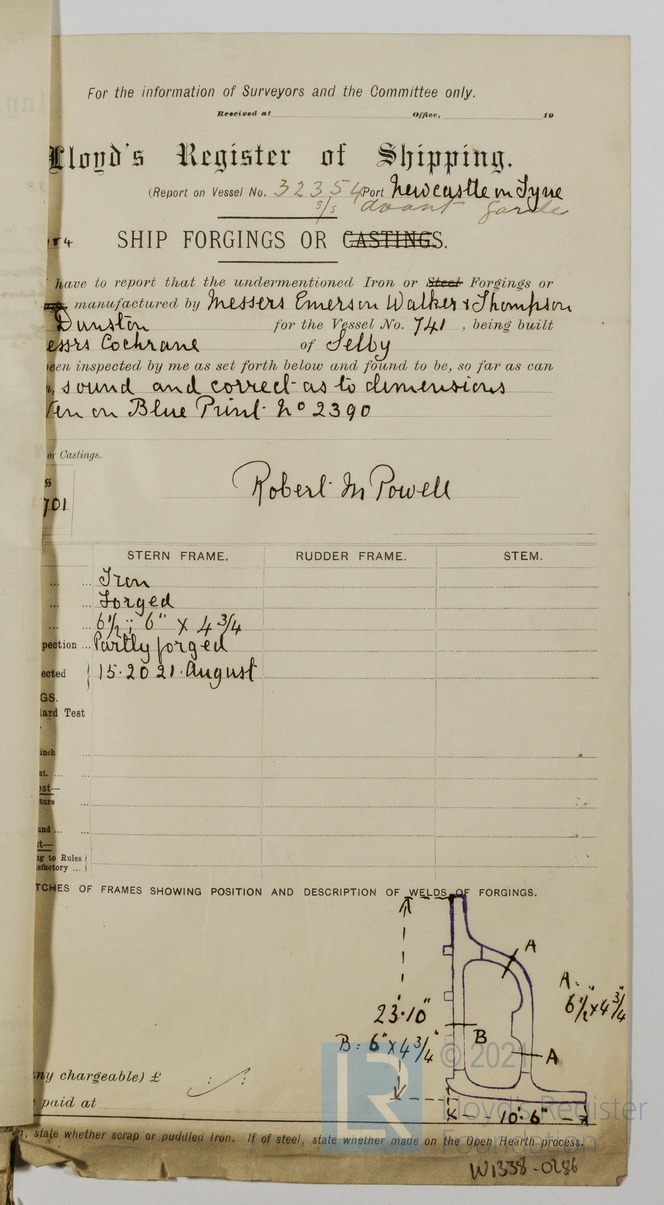 For the information of Surveyors and the Committee only.
Received at Office, 19
Lloyd's Register of Shipping.
(Report on Vessel No. 32354 Port Newcastle on Tyne
s/s avant garde
SHIP FORGINGS OR CASTINGS.
have to report that the undermentioned Iron or Steel Forgings or
manufactured by Messers Emerson Walker & Thompson
Dunston for the Vessel No. 741, being built
essrs Cochrane of Selby
een inspected by me as set forth below and found to be, so far as can
sound and correct as to dimensions
en on Blue Print No 2390
or Castings.
s
701
Robert M Powell
STERN FRAME. RUDDER FRAME. STEM.
... Iron
... Forged
... 6½" ; 6" x 4 3/4
pection ... Partly forged
ected 15.20 21. August
GS.
ard Test
inch
st. ...
est—
ture
and ...
t—
ng to Rules
sfactory ...
TCHES OF FRAMES SHOWING POSITION AND DESCRIPTION OF WELDS OF FORGINGS.
A
A = 6½" x 4 3/4"
23'.10"
B
B = 6" x 4 3/4"
A
10'.6"
ny chargeable) £
paid at
n, state whether scrap or puddled Iron. If of steel, state whether made on the Open Hearth process.
LR
© 2021
Lloyd's Register
Foundation
W1338-0286